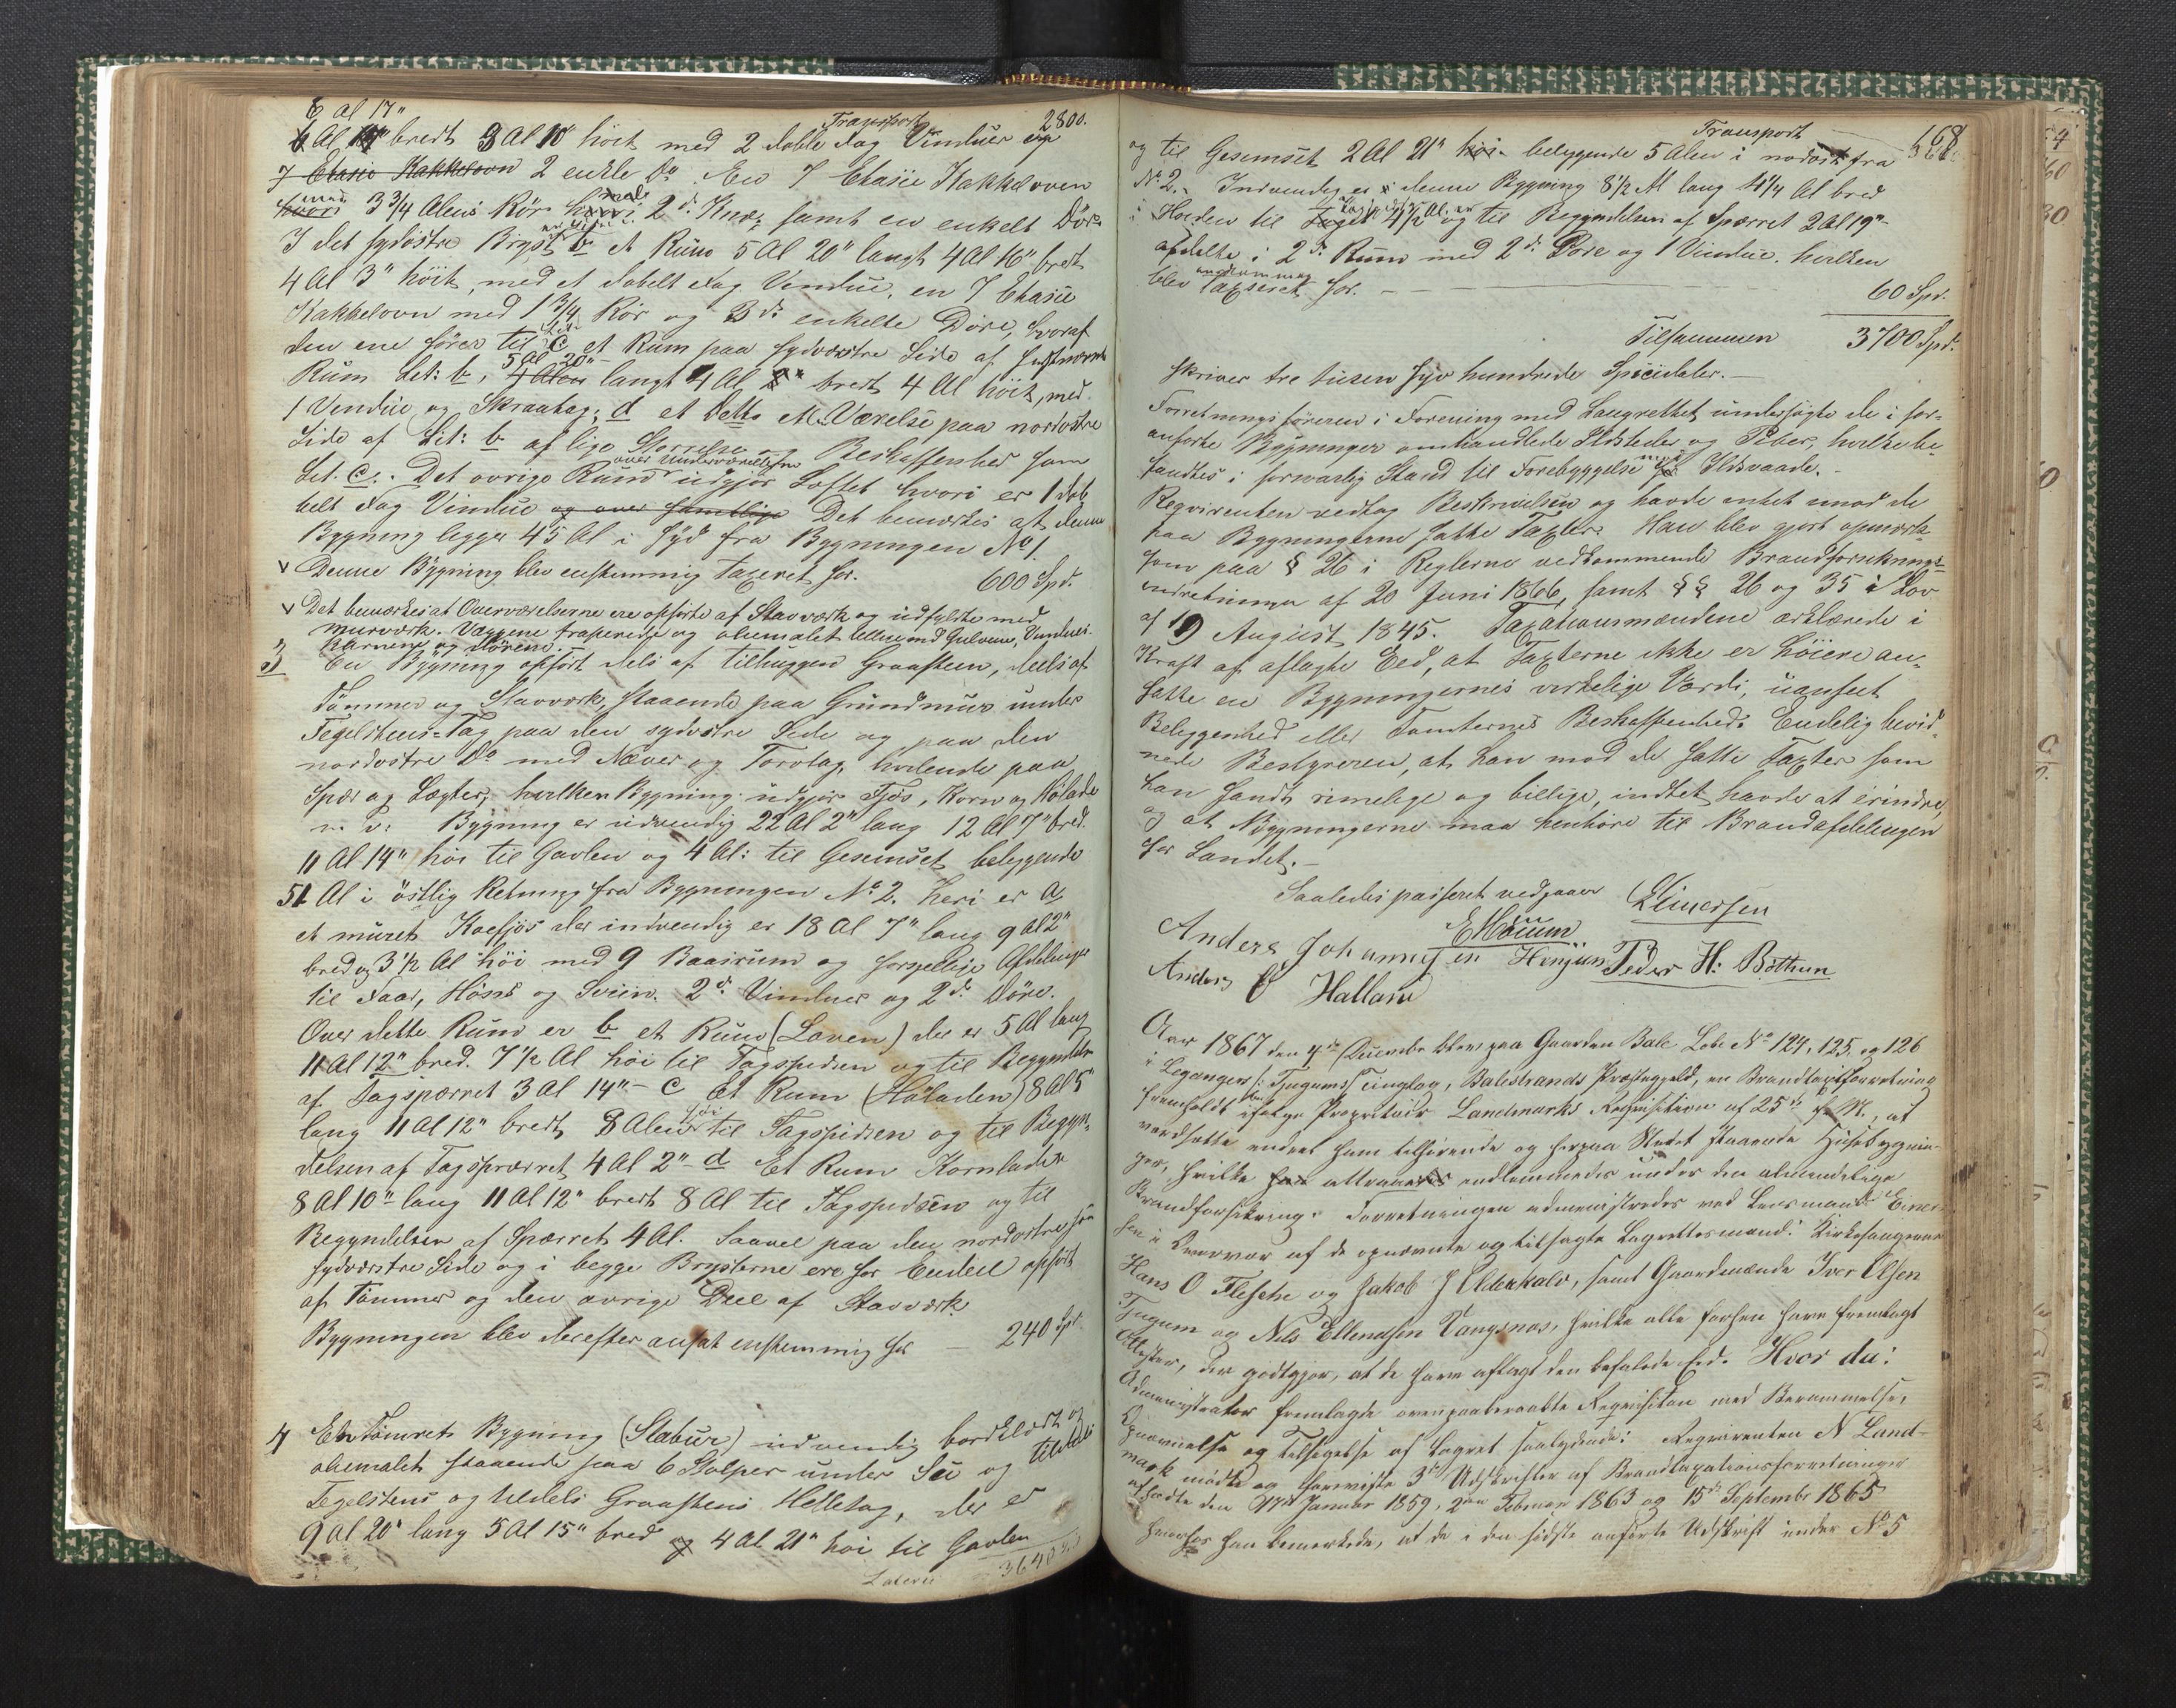 6 Al 17"
Transport 2800.
6 Al 17" bredt 3 Al 10" höit med 2 doble Fag Vinduer og
7 Etasie Kakkelovn 2 enkle Do. En 7 Etasie Kakkeloven
hvori 3 3/4 Alens Rör 2d. Knæ, samt en enkelt Dör.
I det sydöstre Bryst er b et Rum 5 Al 20" langt 4 Al 16" bredt
4 Al 3" höit, med et dobelt Fag Vindue, en 7 Etasie
Kakkelovn med 1 3/4 Rör og 3 de enkelte Döre, hvoraf
den ene förer til Lit. C et Rum paa sydvestre Side af sidstnævnte
Rum Lit: b, 5 Al 20" langt 4 Al 8" bredt 4 Al höit, med
1 Vindue og Skraatag; d et detto Værelse paa nordostre
Side af Lit: b af lige Störrelse og Beskaffenhed som
Lit. C. Det övrige Rum over Underværelserne udgjör Loftet hvori er 1 dob
belt Fag Vindue og over samtlige Det bemærkes at denne
Bygning ligger 45 Al i Syd fra Bygningen No 1.
v Denne Bygning blev enstemmig taxeret for. 600 Spd.
v Det bemærkes at Overværelserne ere opförte af Stavværk og udfyldte med
Murværk. Væggene traperede og oliemalet tillige med Gulvene, Vindues-
karmene og Dörene.
3 En Bygning opfört dels af tilhuggen Graasteen, deels af
Tömmer og Stavværk, staaende paa Grundmur under
Tegelsteens-Tag paa den sydvestre Side og paa den
nordostre Do med Næver og Torvtag, hvilende paa
Spær og Lægter, hvilken Bygning udgjör Fjös, Korn og Hölade
m. v. Bygning er udvendig 22 Al 2" lang 12 Al 7" bred
11 Al 14" höi til Gavlen og 4 Al: til Gesemset beliggende
51 Al i östlig Retning fra Bygningen No 2. heri er a
et muret Koefjös der indvendig er 18 Al 7" lang 9 Al 2"
bred og 3 1/2 Al höi med 9 Baasrum og forskjellige Afdelinger
til Faar, Höns og Sviin. 2d. Vinduer og 2d. Döre.
Over dette Rum er b et Rum (Loven) der er 5 Al lang
11 Al 12" bred. 7 1/2 Al höi til Tagspidsen og til Begyndelsen
af Tagspærret 3 Al 14" - C Et Rum (Höladen) 8 Al 5"
lang 11 Al 12" bredt, 8 Alen höi til Tagspidsen og til Begyn-
delsen af Tagspærret 4 Al 2" - d Et Rum Kornladen
8 Al 10" lang 11 Al 12" bredt 8 Al til Tagspidsen og til
Begyndelsen af Spærret 4 Al. Saavel paa den nordostre som
sydvestre Side og i begge Brysterne ere for Endeel opfört
af Tömmer og den övrige Deel af Stavværk
Bygningen blev derefter ansat enstemmig for - 240 Spd
4 En Tömret Bygning (Stabur) udvendig bordklædt og
oliemalet staaende paa 6 Stolper under Su og tildels
Tegelstens og tildels Graastens Helletag, der er
9 Al 20" lang 5 Al 15" bred og 4 Al 21" höi til Gavlen
Lateris 3640
Transport 168
og til Gesemset 2 Al 21" höi. beliggende 5 Alen i nordost fra
No 2. Indvendig er i denne Bygning 8 1/2 Al lang 4 1/4 Al bred
i Höiden til Tagspidsen 4 1/2 Al. er og til Begyndelsen af Spærret 2 Al 19"
afdelte i 2de Rum med 2de Döre og 1 Vindue. hvilken
blev enstemmig Taxseret for. - 60 Spd.
Tilsammen 3700 Spd.
skriver tre tusen syv hundrede Speciedaler. -
Forretningsföreren i Forening med Laugrettet undersögte de i for-
anförte Bygninger omhandlede Ildsteder og Piber, hvilke be-
fandtes i forsvarlig Stand til Forebyggelse mod Ildsvaade. -
Reqvirenten vedtog Beskrivelsen og havde intet mod de
paa Bygningerne satte Taxter. Han blev gjort opmærk-
som paa § 26 i Reglerne vedkommende Brandforsiknings-
indretninger af 20 Juni 1866, samt §§ 26 og 35 i Lov
af 19 August 1845. Taxationsmændene erklærede i
Kraft af aflagte Eed, at Taxterne ikke er höiere an-
satte en Bygningernes verkelige Værdi, uanseet
Beliggenhed eller Tomternes Beskaffenhed. Endelig bevid-
nede Bestyreren, at han mod de satte Taxter som
han fandt rimelige og billige, indtet havde at erindre,
og at Bygningerne maa henhöre til Brandafdelingen
for Landet. -
Saaledes passeret vedgaaer LEinersen
EMoum
Anders Johannesen Hönjum Peder H: Böthun
Anders O Halland
Aar 1867 den 4de Decembr blev paa Gaarden Bale Löbe No 124, 125 og 126
i Leganger /: Tjugums/ Tinglag, Balestrands Præstegjeld, en Brandtaxtforretning
fremholdt ifölge Proprietair Landmarks Reqvisition af 25de f. M., at
værdsætte endeel ham tilhörende og herpaa Stedet staaende Huusbygnin-
ger, hvilke han attraaer indlemmede under den almindelige
Brandforsikring. Forretningen administredes ved Lensmand Einer-
sen i Overvær af de opnævnte og tilsagte Lagrettesmænd: Kirkesanger
Hans O Flesche og Jakob J Olderkalv, samt Gaardmænde Iver Olsen
Tjugum og Nils Ellendsen Vangsnes, hvilke alle forhen have fremlagt
Attester, der godtgjör, at de have aflagt den befalede Eed. Hvor da:
Administrator fremlagde ovenpaaberaabte Reqvisition med Berammelse,
Opnævnelse og Tilsigelse af Lagret saalydende: Reqvirenten N Land-
mark mödte og fremviste 3de Udskrifter af Brandtaxationsforretninger
afholdte den 17de Januar 1859, 2den Februar 1863 og 15de Septembr 1865
hvorfor han bemærkede, at de i den sidste anförte Udskrift under No 5